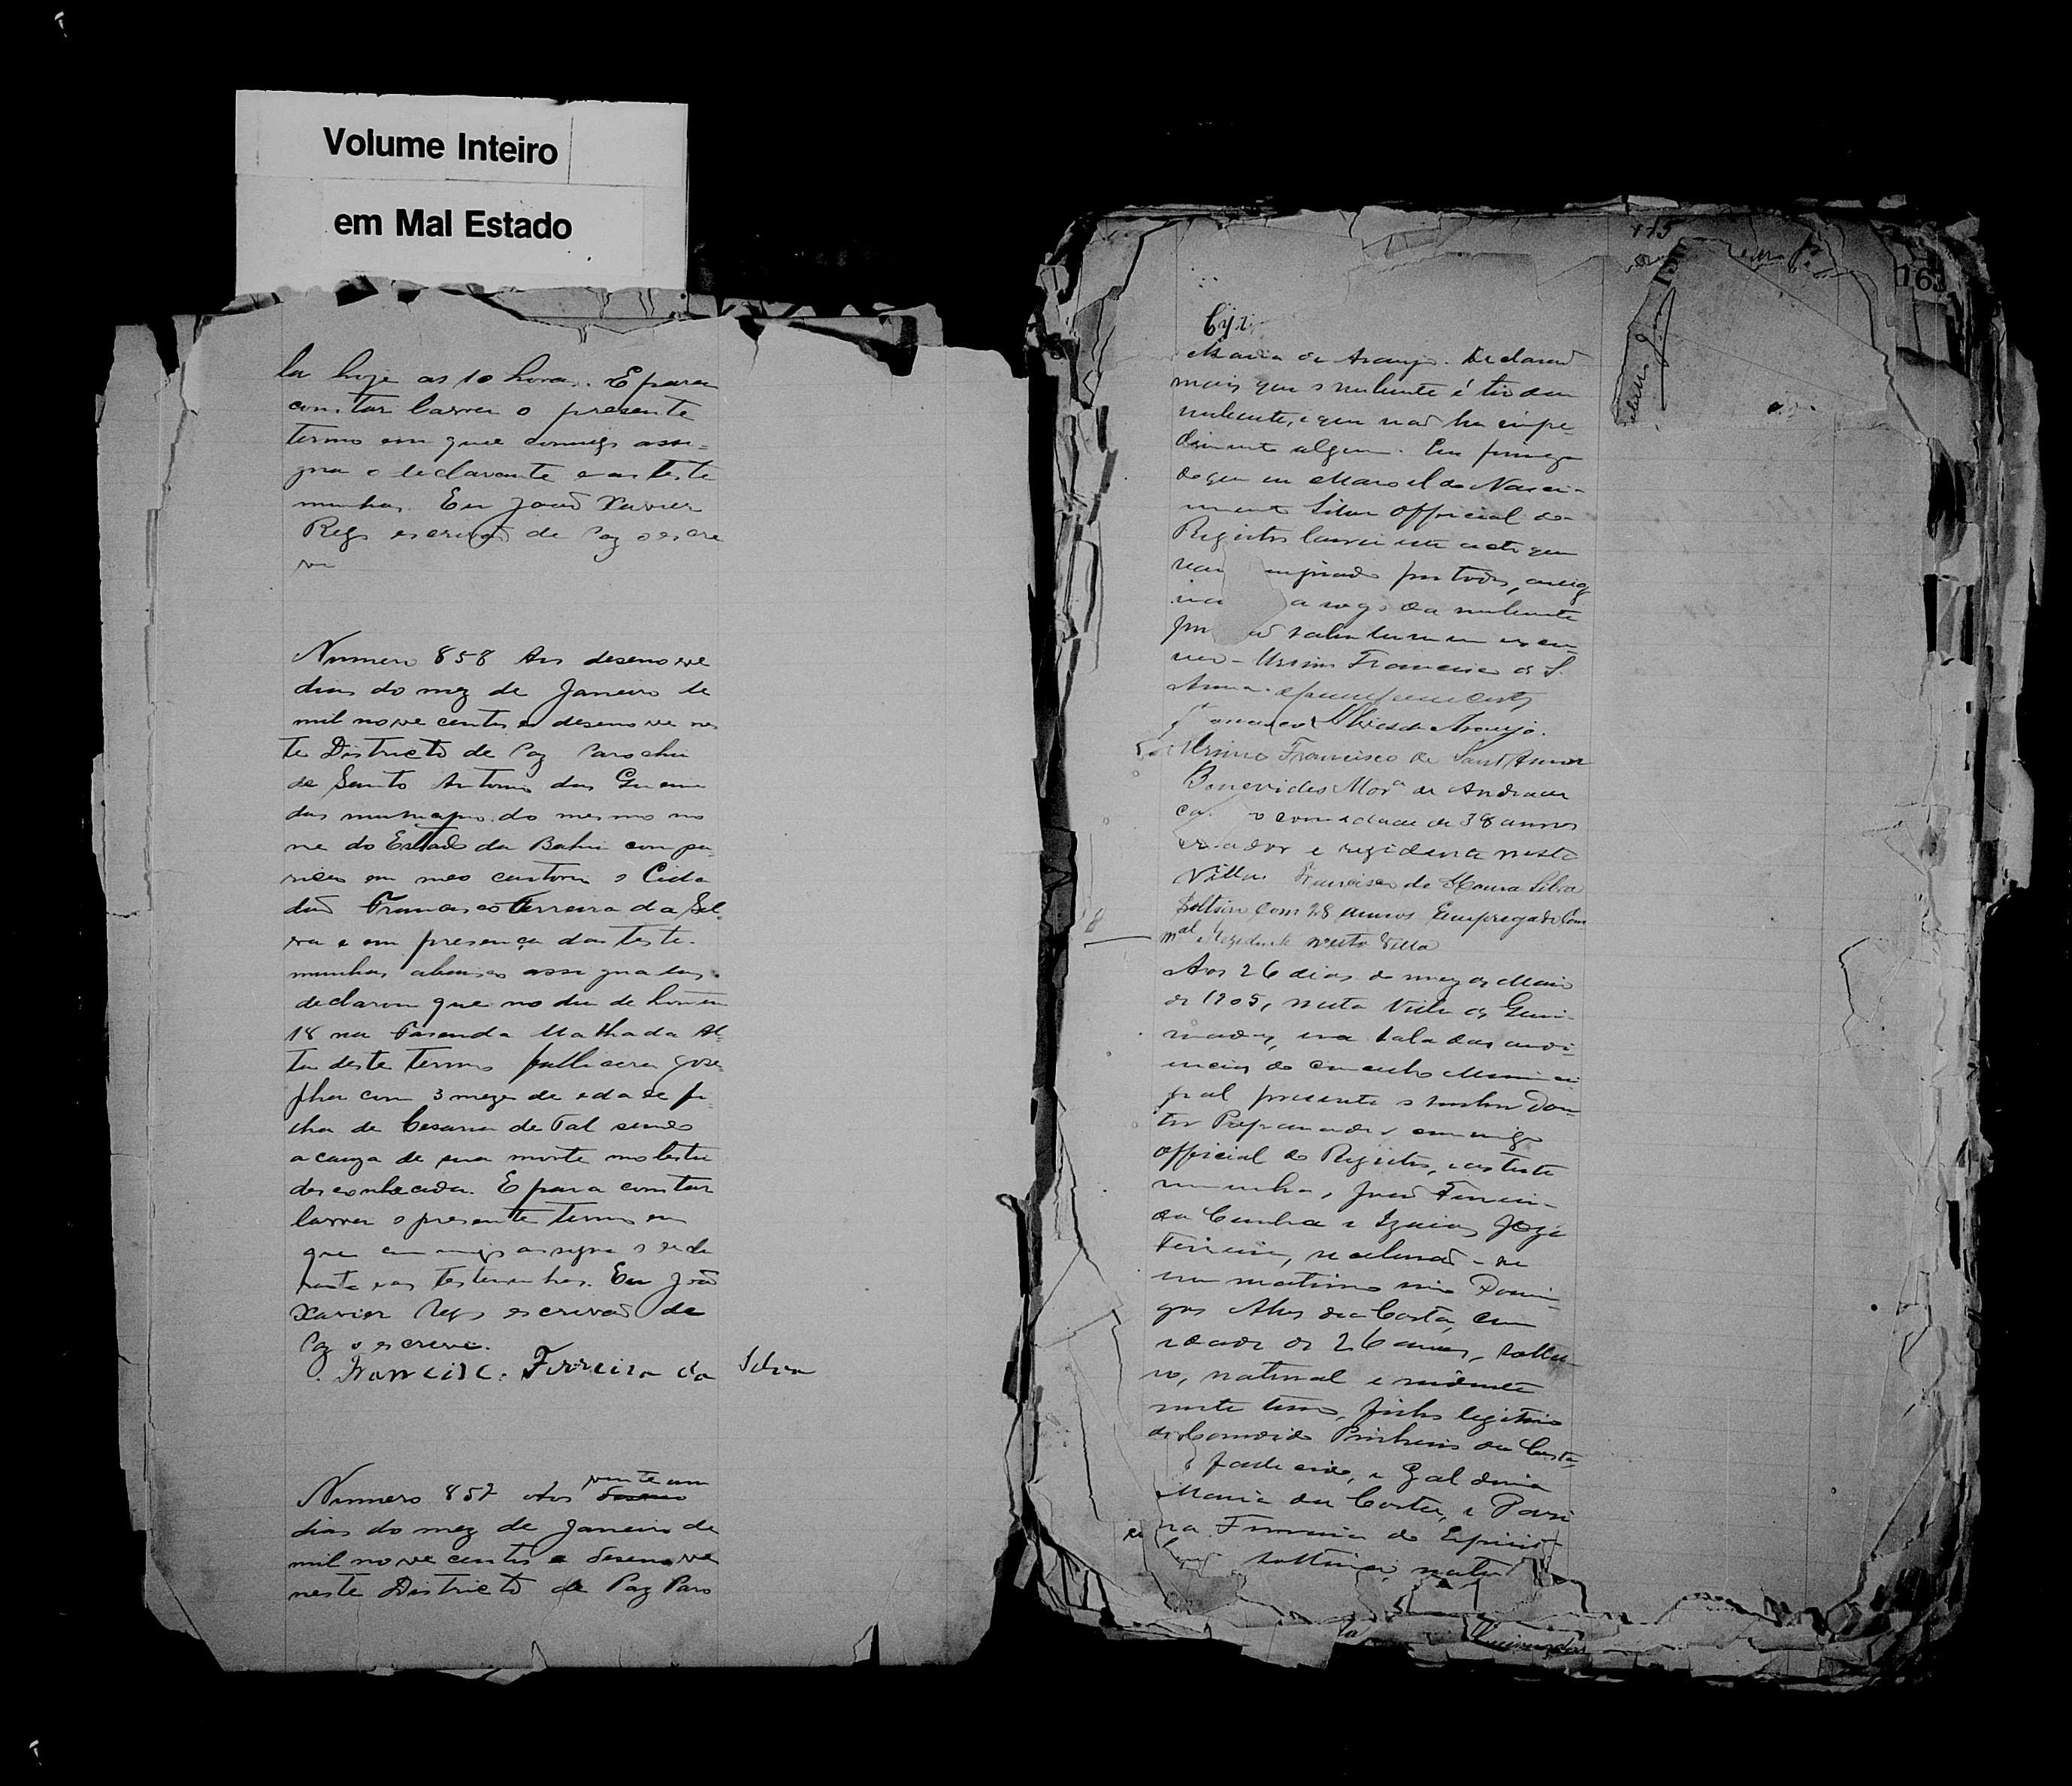 Volume Inteiro
em Mal Estado
la hoje as 10 horas. E para
constar lavrei o presente
termo em que commigo assi=
gna o declarante e as teste
munhas. Eu João Xavier
Regs escrivão de Paz o escre
vi
Numero 858 Aos desenove
dias do mez de Janeiro de
mil nove centos e desenove nes
te Districto de Paz Parochia
de Santo Antonio das Queima
das municipio do mesmo no
me do Estado da Bahia compa
receu em meo cartorio o Cida
dão Francisco Ferreira da Sil
va e em presença das teste-
munhas abaixo assignadas
declarou que no dia de hontem
18 na Fasenda Malhada Al
ta deste termo falleceu Jose
pha com 3 mezes de edade fi
lha de Cesaria de Tal sendo
a cauza de sua morte molestia
desconhecida. E para constar
lavrei o presente termo em
que commigo assigna o decla
rante e as testemunhas. Eu João
Xavier Regs escrivão de
Paz o escrevi.
Francisco Ferreira da Silva
vinte um
Numero 857 Aos deseno
dias do mez de Janeiro de
mil nove centos e desenove
neste Districto de Paz Paro
115
163
Maria de Araujo. Declarou
mais que o nubente é tio da
nubente, e que não ha empe-
dimento algum. Em firmeza
do que eu Manoel do Nasci-
mento Silva Official do
Registro lavrei este acto que
vae assignado por todos, assig
a rogo da nubente
por não saber ler nem escre
ver - Ursino Francisco de S.
Anna.
Francisco Alves de Araujo.
Ursino Francisco de Sant'Anna
Benevides Morª de Andrade
ca o com idade de 38 annos
e rezidente nesta
Villa. Francisco de Moura Silva
Solteiro com 28 annos Empregado Com
mal e Rezidente nesta Villa
Aos 26 dias do mez de Maio
de 1905, nesta Villa de Quei-
madas, na sala das audi-
encias do Concelho Munici
pal presente o senhor Dou-
tor Preparador commigo
Official do Registro, e as teste
munhas, João Ferreira
da Cunha e Izaias José
Ferreira, receberão-se
em matrimonio Domin-
gos Alves da Costa, com
idade de 26 annos, soltei-
ro, natural e residente
neste termo, filho legitimo
de Candido Pinheiro da Costa,
fallecido, e Galdina
Maria da Costa, e
na Ferreira do Espirito
solteira, natu
Queimadas